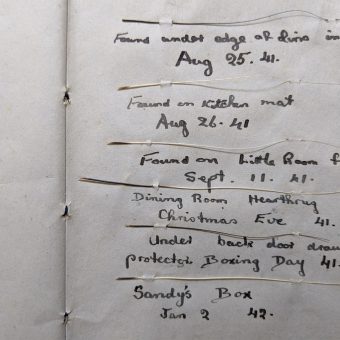 Found under edge of lino in
Aug 25. 41.
Found on Kitchen mat
Aug 26. 41
Found on Little Room f
Sept. 11. 41.
Dining Room Hearthrug
Christmas Eve 41.
Under back door drau
protector Boxing Day 41.
Sandy's Box
Jan 2 42.